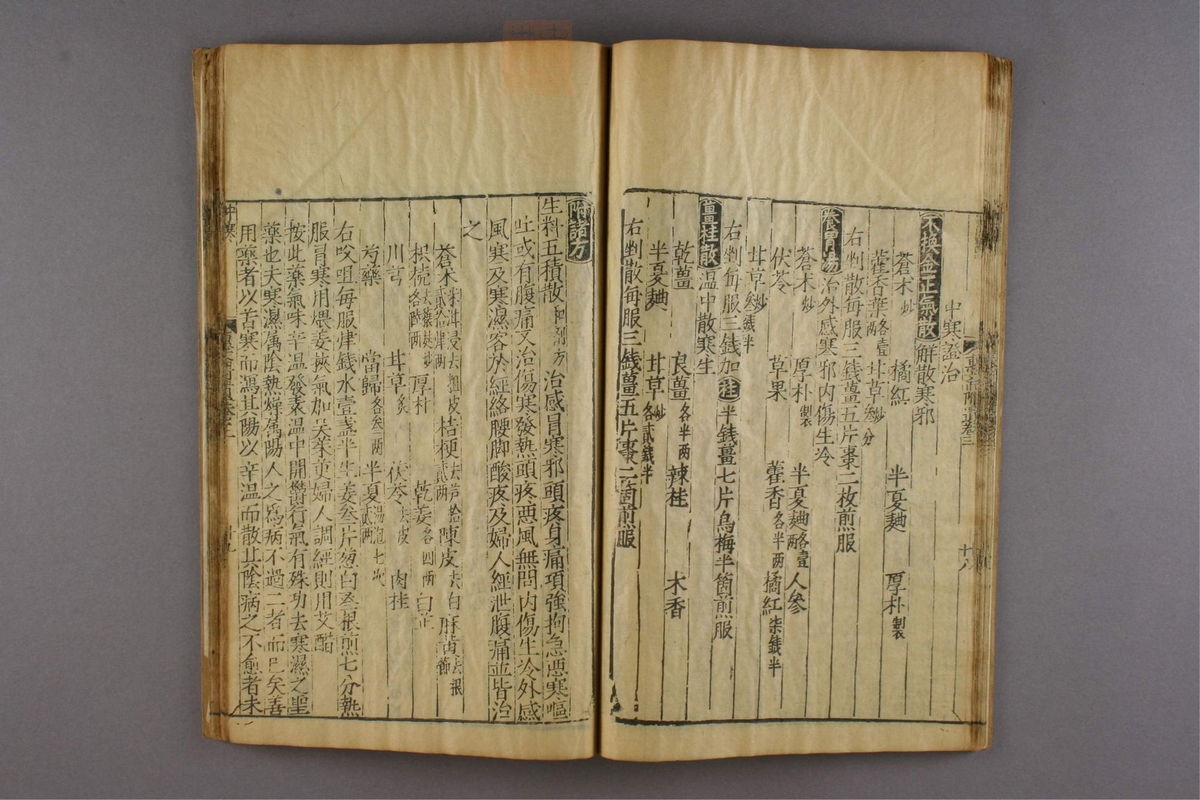 中寒證治
不換金正氣散 解散寒邪
蒼朮炒 橘紅 半夏麯 厚朴製
藿香葉各壹兩 甘草炙 分
右剉散每服三錢薑五片棗二枚煎服
養胃湯 治外感寒邪內傷生冷
蒼朮炒 厚朴製 半夏麯各壹兩 人參
茯苓 草果 藿香各半兩 橘紅柒錢半
甘草炒 錢半
右剉每服三錢加桂半錢薑七片烏梅半箇煎服
薑桂散 溫中散寒生
乾薑 良薑各半兩 辣桂 木香
半夏麯 甘草炒各貳錢半
右剉散每服三錢薑五片棗二箇煎服
附諸方
生料五積散 和劑方 治感冒寒邪頭疼身痛項強拘急惡寒嘔
吐或有腹痛又治傷寒發熱頭疼惡風無問內傷生冷外感
風寒及寒濕客於經絡腰脚酸疼及婦人經泄腹痛並皆治
之
蒼朮米泔浸去麁皮貳拾肆兩 桔梗去芦拾貳兩 陳皮去白 麻黃去根節
枳殼去穰麩炒各陸兩 厚朴 乾姜各四兩 白芷
川芎 甘草炙 茯苓去皮 肉桂
芍藥 當歸各叁兩 半夏湯泡七次貳兩
右㕮咀每服肆錢水壹盞半生姜叁片葱白叁根煎七分熱
服冒寒用煨姜挾氣加吳茱萸婦人調經則用艾醋
按此藥氣味辛溫發表溫中開鬱行氣有殊功去寒濕之聖
藥也夫寒濕屬陰熱燥屬陽人之爲病不過二者而已矣善
用藥者以苦寒而瀉其陽以辛溫而散其陰病之不愈者未
中寒 十九